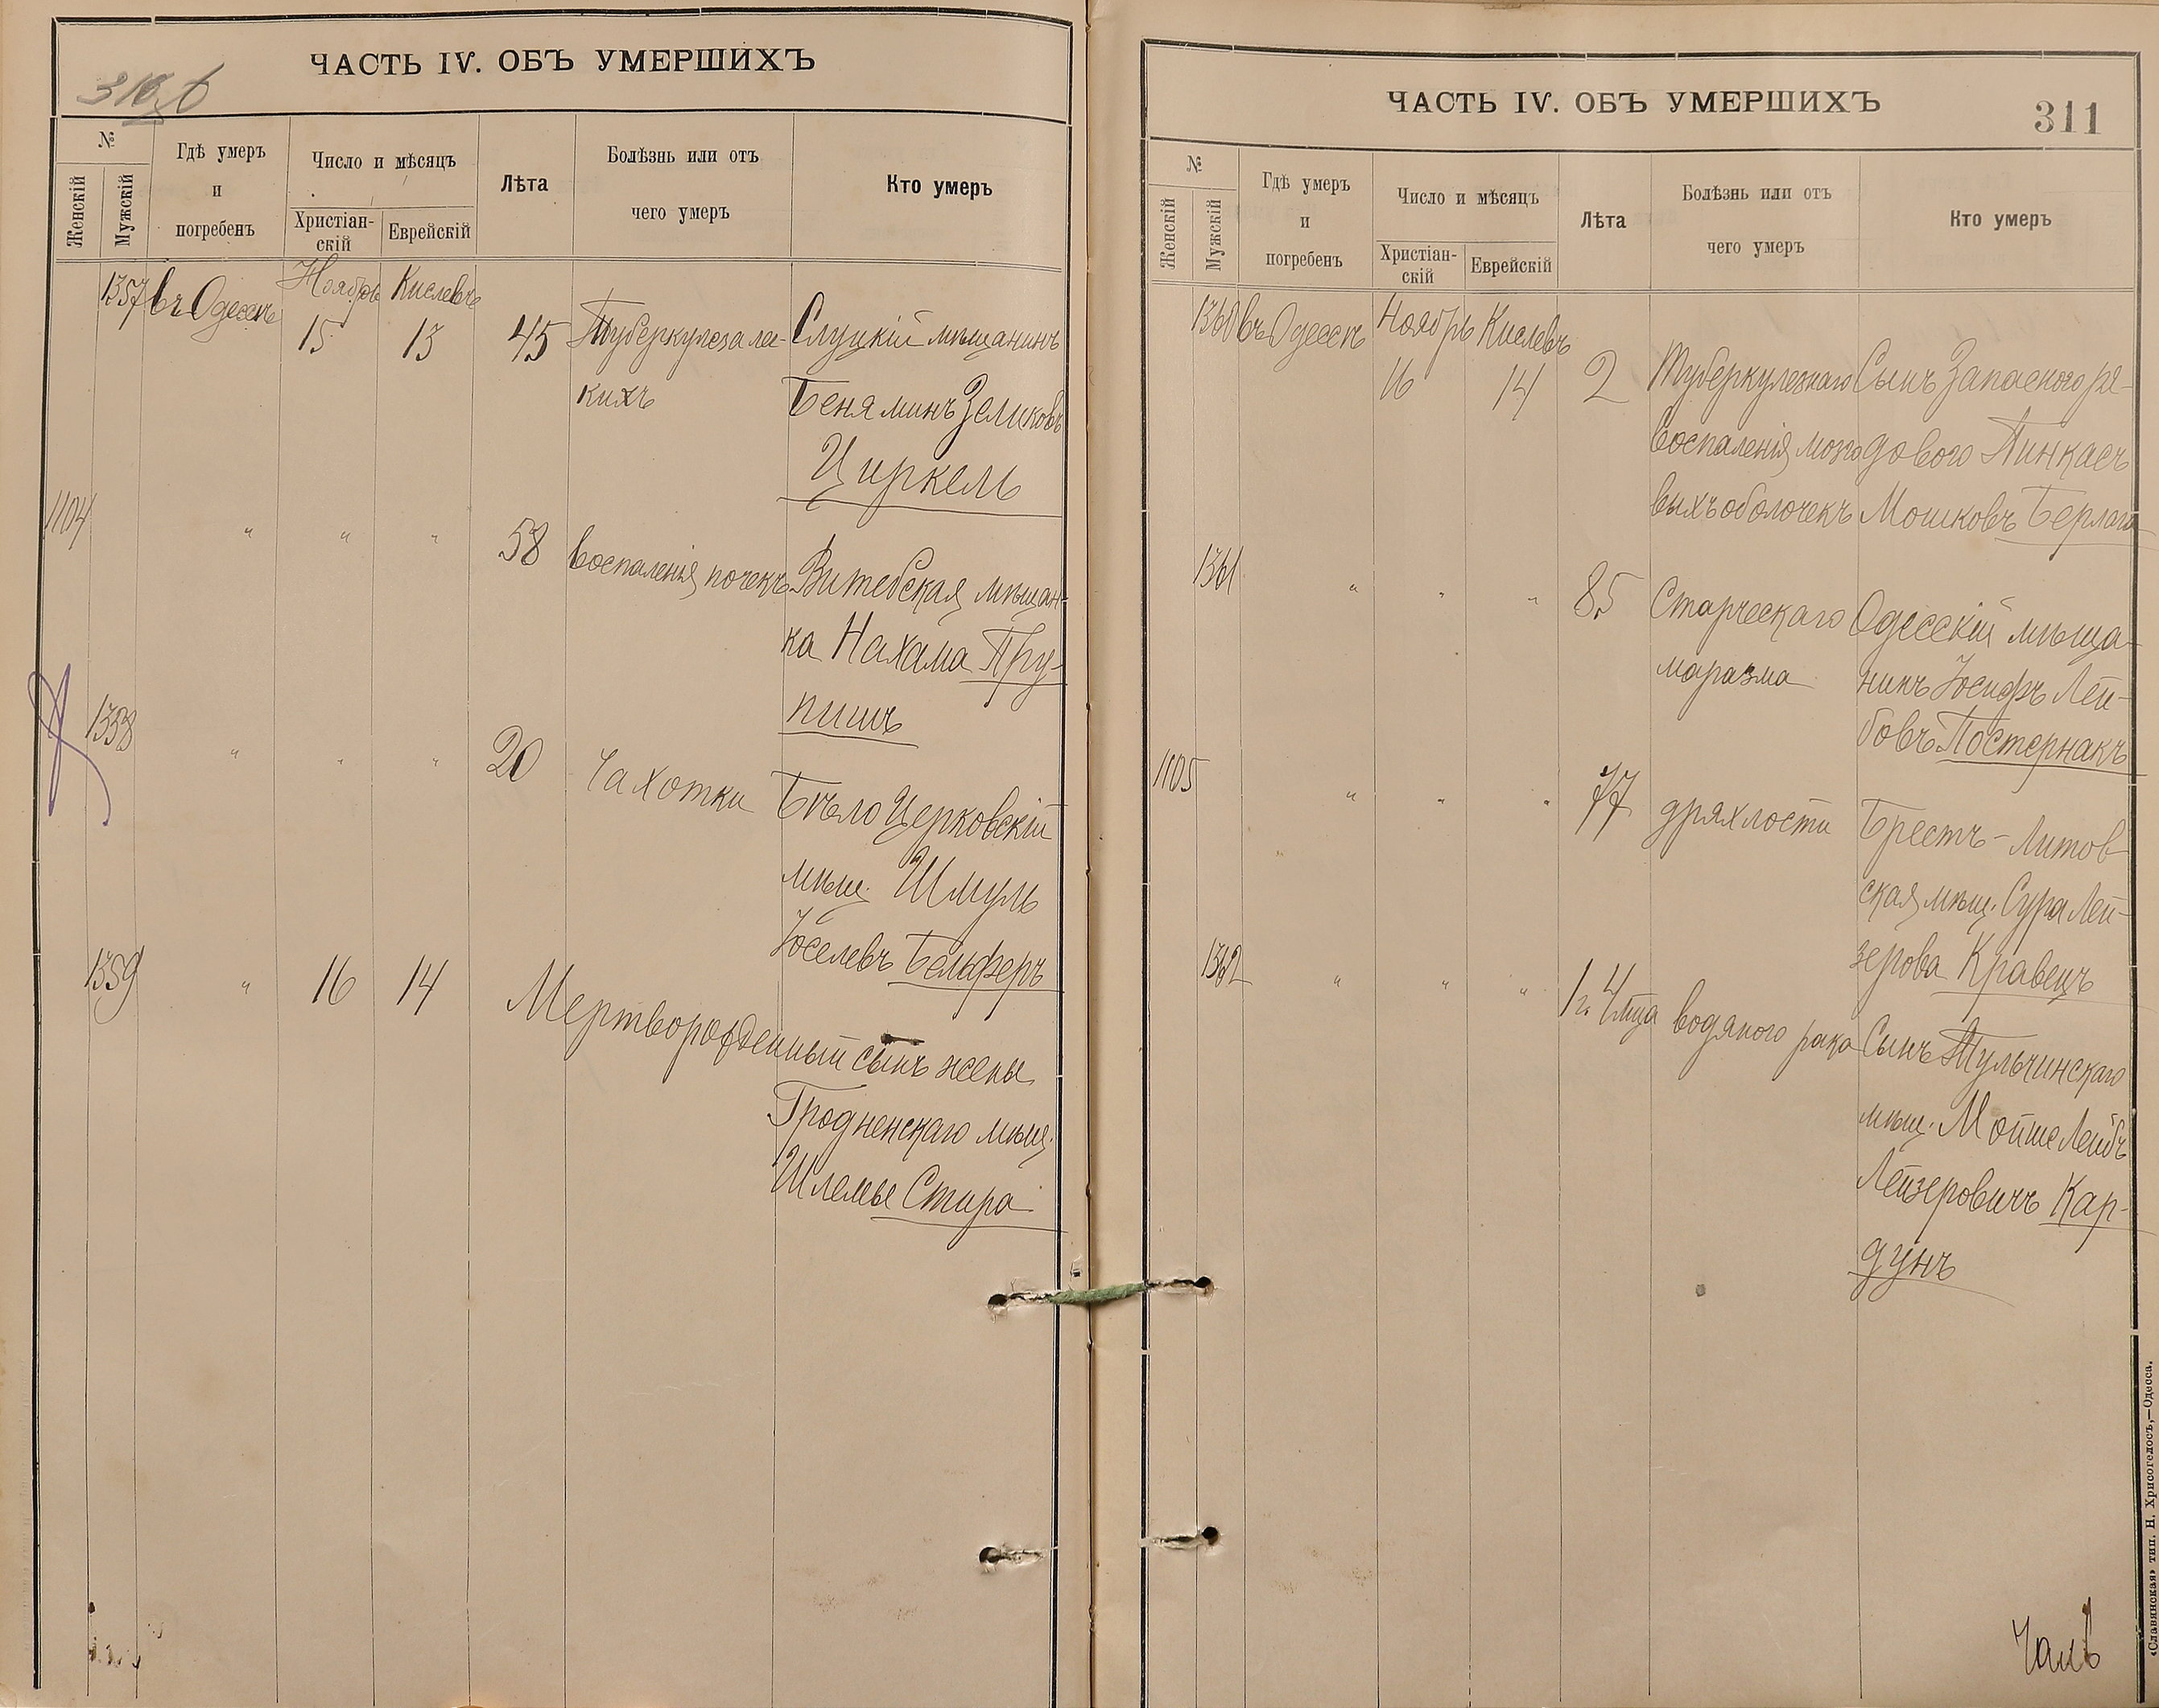 ЧАСТЬ IV. ОБЪ УМЕРШИХЪ
№
Женскій
Мужскій
Гдѣ умеръ
и
погребенъ
Число и мѣсяцъ
Христіан-
скій
Еврейскій
Лѣта
Болѣзнь или отъ
чего умеръ
Кто умеръ
1357 въ Одессѣ Ноябрь Кислевъ
15 13 45 Туберкулеза лег- Слуцкій мѣщанинъ
кихъ Беняминъ Зеликовъ
Циркель
1104 " " " 58 воспаленія почекъ Витебская мѣщан-
ка Нахама Пру-
пишъ
1358 " " " 20 Чахотки Бѣлоцерковскій
мѣщ. Шмуль
Іоселевъ Бельферъ
1359 " 16 14 Мертворожденный сынъ жены
Гродненскаго мѣщ.
Шлемы Стира
ЧАСТЬ IV. ОБЪ УМЕРШИХЪ
311
№
Женскій
Мужскій
Гдѣ умеръ
и
погребенъ
Число и мѣсяцъ
Христіан-
скій
Еврейскій
Лѣта
Болѣзнь или отъ
чего умеръ
Кто умеръ
1360 въ Одессѣ Ноябрь Кислевъ
16 14 2 Туберкулезнаго Сынъ Запасного ря-
воспаленія мозго дового Пинкасъ
выхъ оболочекъ Мошковъ Берлага
1361 " " " 85 Старческаго Одесскій мѣща-
маразма нинъ Іосифъ Лей-
бовъ Постернакъ
1105 " " " 77 дряхлости Брестъ-Литов
ская мѣщ. Сура Лей-
зерова Кравецъ
1362 " " " 1 г. 4 мца водяного рака Сынъ Тульчинскаго
мѣщ. Мойше Лейбъ
Лейзеровичъ Кар-
дунъ
«Славянская» тип. Н. Хрисогелосъ,—Одесса.